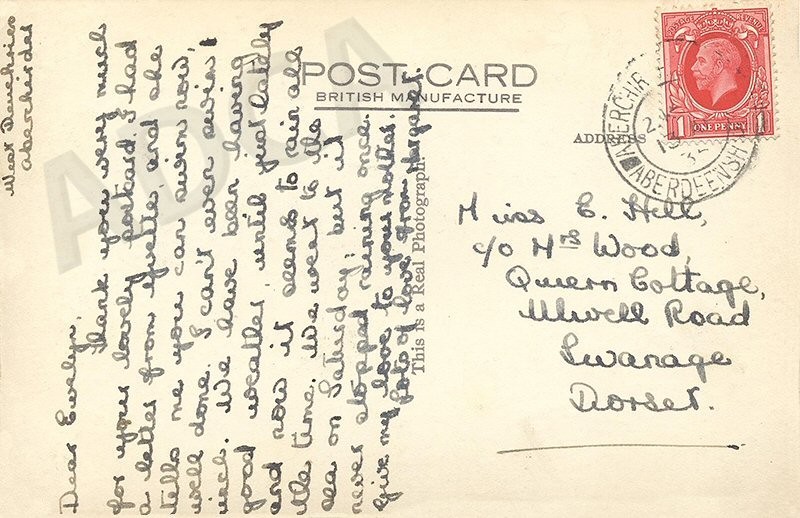 West Deuchries
Aberchirder
Dear Evelyn,
Thank you very much
for your lovely postcard. I had
a letter from Yvette and she
tells me you can swim now,
well done. I can't even swim
inch. We have been having
good weather until just latdly
and now it seems to rain all
the time. We went to the
sea on Saturday; but it
never stopped raining once.
Give my love to your mother.
Lots of love from Margaret.
This is a Real Photograph.
POST-CARD
BRITISH MANUFACTURE
ADDRESS
POSTAGE REVENUE
1 ONE PENNY 1
ABERDEENSHIRE
Miss E. Hill,
c/o Mrs Wood,
Quern Cottage,
Ulwell Road
Swanage
Dorset.
ADCA